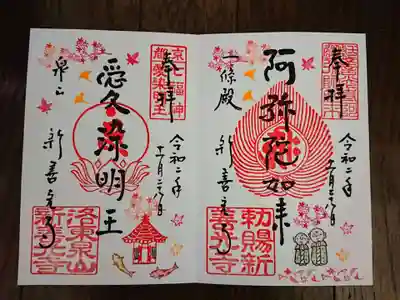 奉拝
一條殿
阿弥陀如来
新善光寺
令和二年
勅賜新
善光寺
奉拝
泉山
愛染明王
新善光寺
令和二年
洛東泉山
新善光寺